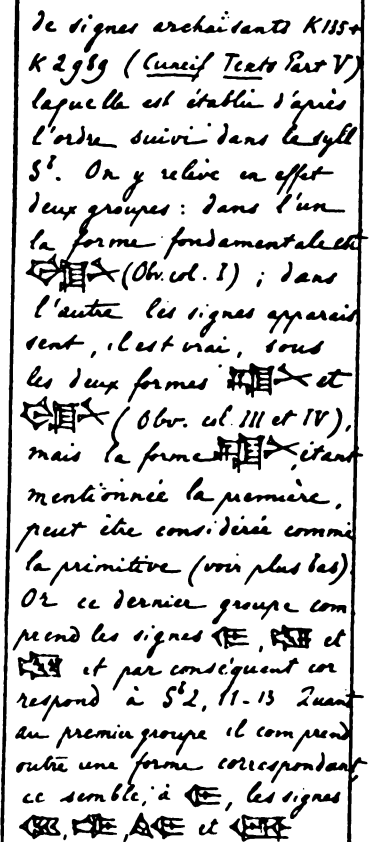 de signes archaisants K 135+
K 2989 (Cuneif Texts Part V)
laquelle est établie d'après
l'ordre suivi dans le syll
Sᵇ. On y relève en effet
deux groupes : dans l'un
la forme fondamentale est
(Obv. col. I) ; dans
l'autre les signes apparais
sent, il est vrai, sous
les deux formes et
(Obv. col. III et IV),
mais la forme , étant
mentionnée la première,
peut être considérée comme
la primitive (voir plus bas).
Or ce dernier groupe com
prend les signes , et
et par conséquent cor
respond à Sᵇ 2, 11-13 Quant
au premier groupe il comprend
outre une forme correspondant,
ce semble, à , les signes
, , et